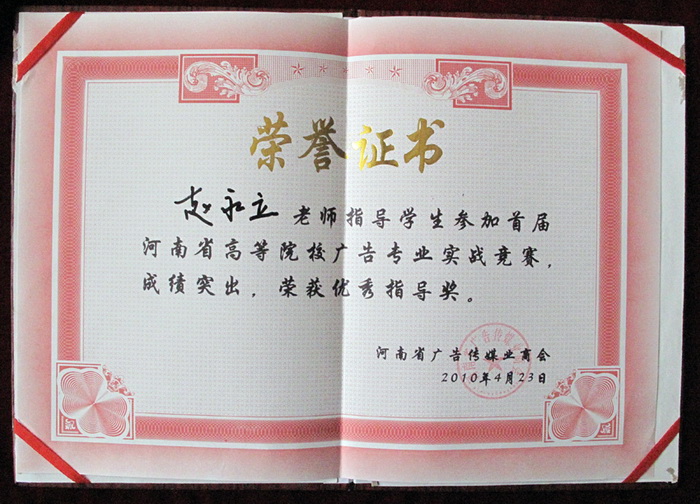 荣誉证书
赵永立 老师指导学生参加首届
河南省高等院校广告专业实战竞赛，
成绩突出，荣获优秀指导奖。
河南省广告传媒业商会
2010年4月23日